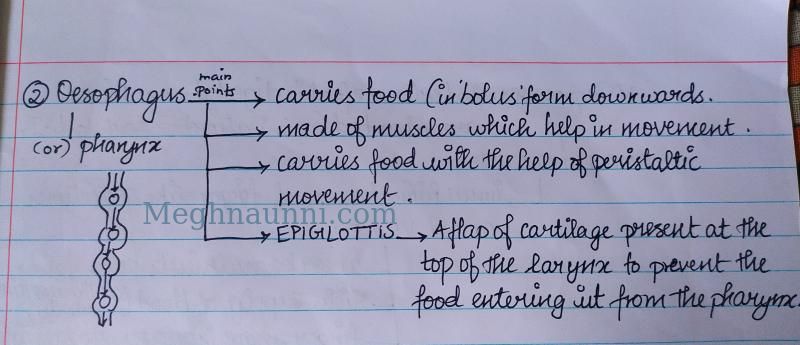 ② Oesophagus main points → carries food (in 'bolus' form downwards.
→ made of muscles which help in movement.
(or) pharynx → carries food with the help of peristaltic
movement.
Meghnaunni.com
→ EPIGLOTTIS → A flap of cartilage present at the
top of the larynx to prevent the
food entering it from the pharynx.